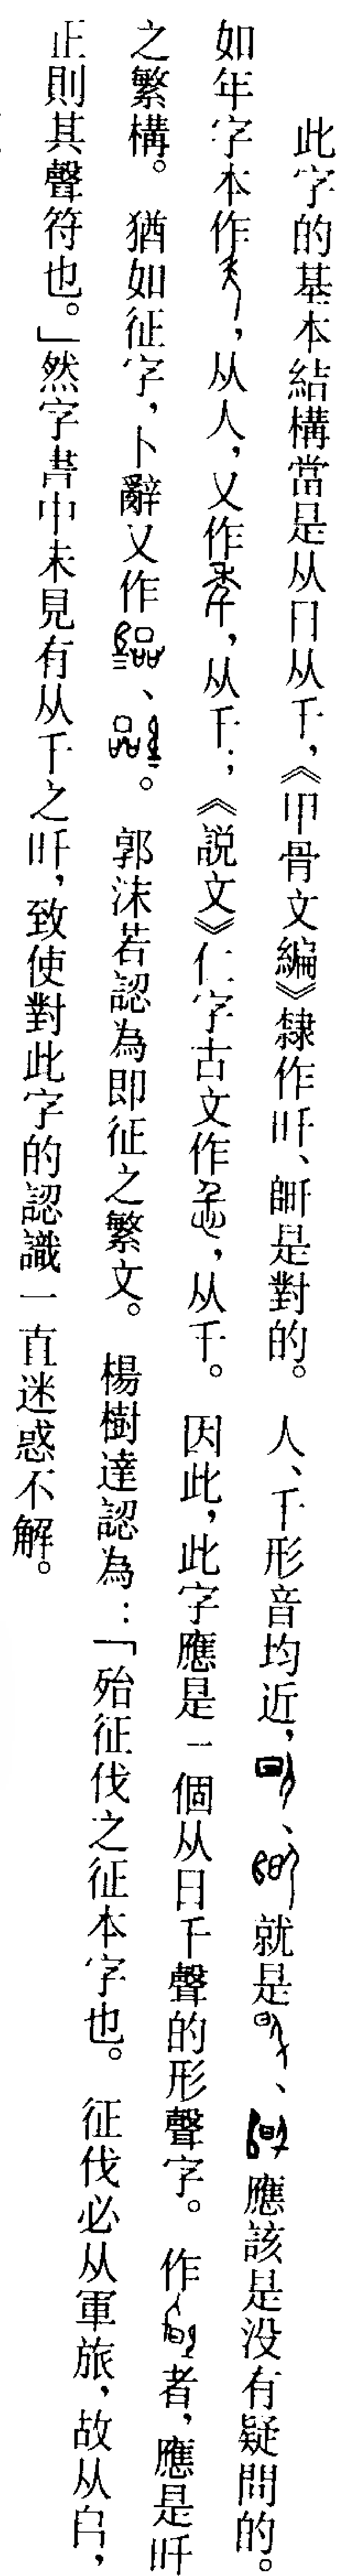 此字的基本結構當是从日从千，《甲骨文編》隸作㫃、是對的。人、千形音均近，、就是、應該是没有疑問的。
如年字本作，从人，又作，从千；《説文》仁字古文作，从千。因此，此字應是一個从日千聲的形聲字。作者，應是
之繁構。猶如征字，卜辭又作、。郭沫若認為即征之繁文。楊樹達認為：「殆征伐之征本字也。征伐必从軍旅，故从𠂤，
正則其聲符也。」然字書中未見有从千之，致使對此字的認識一直迷惑不解。